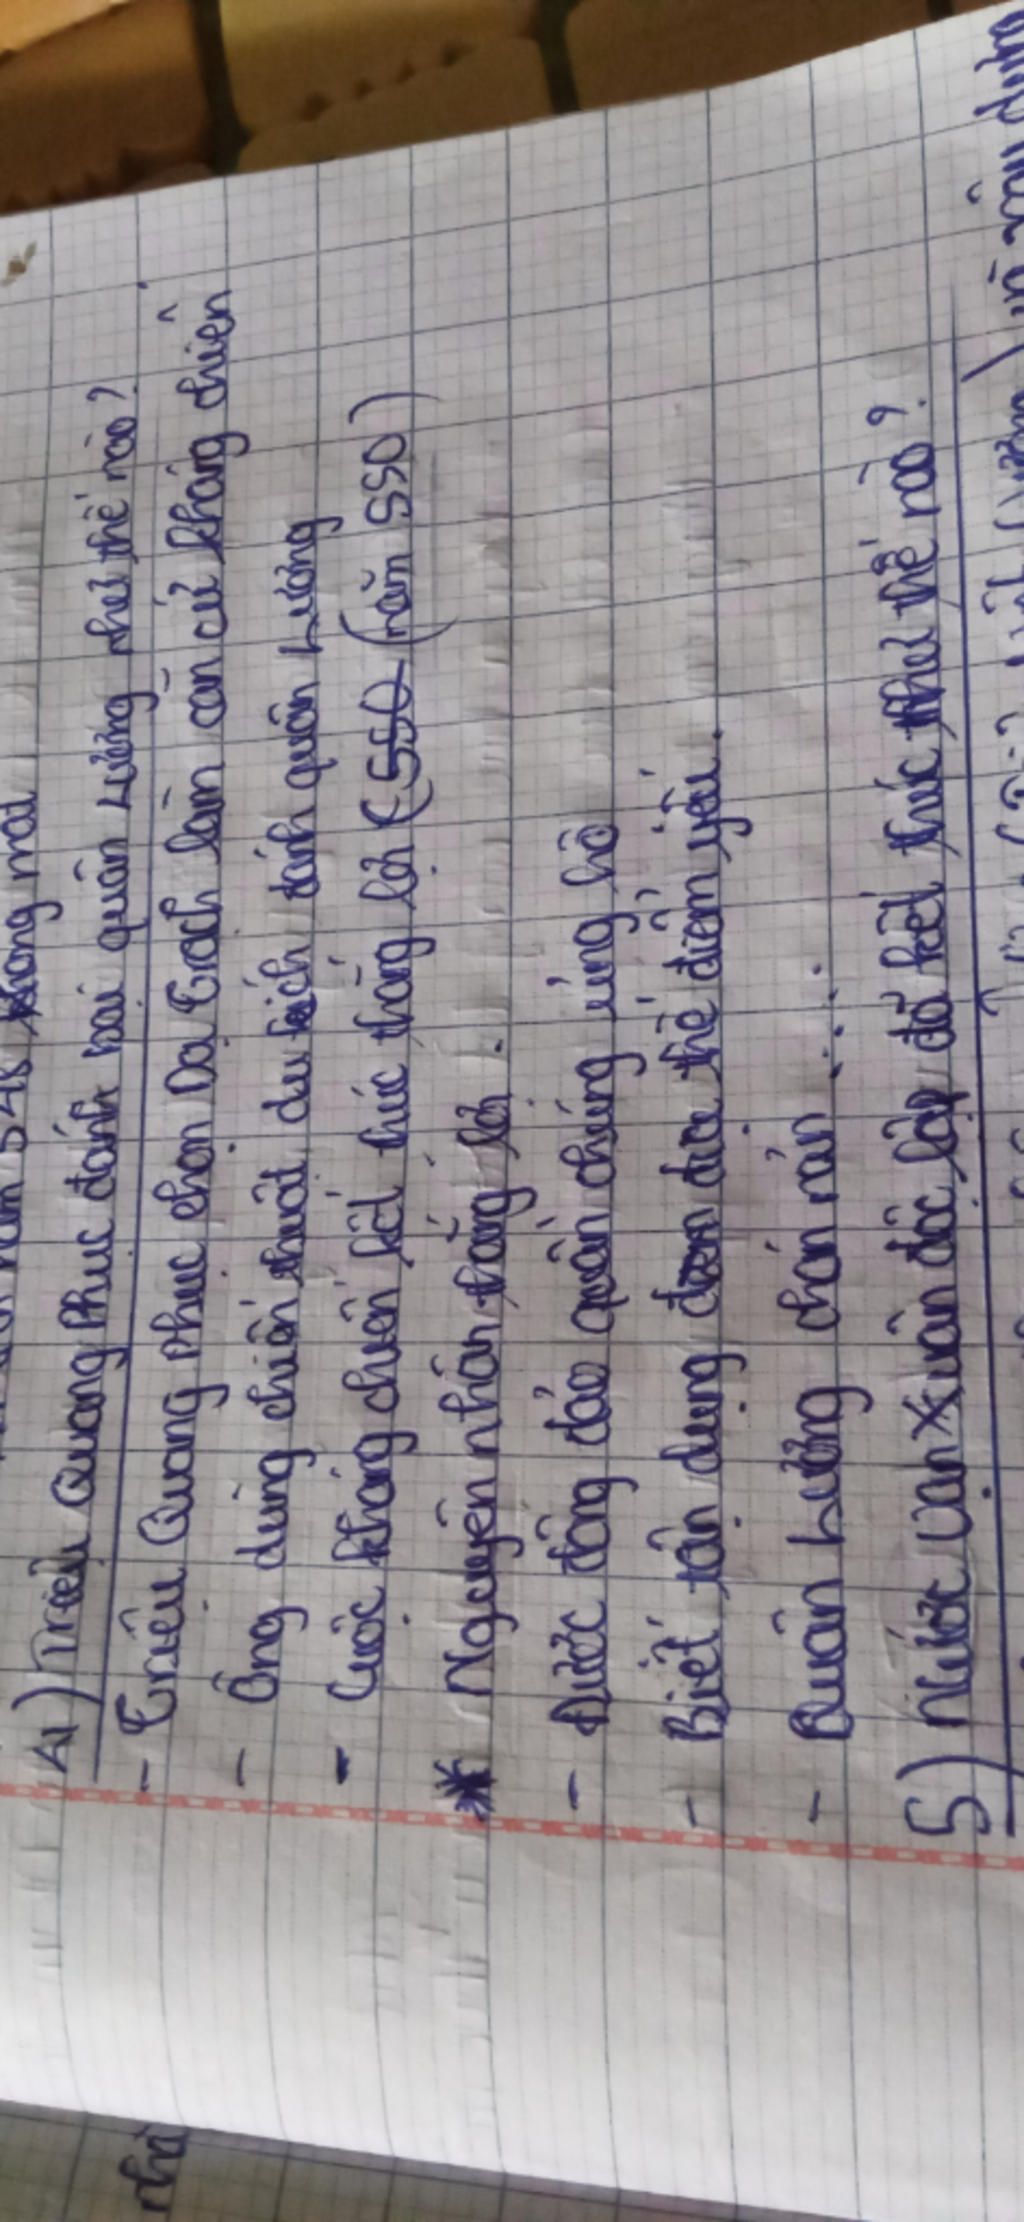 năm 548 không mất
4) Triệu Quang Phục đánh bại quân Lương như thế nào?
- Triệu Quang Phục chọn Dạ Trạch làm căn cứ kháng chiến
- Ông dùng chiến thuật du kích đánh quân Lương
- Cuộc kháng chiến kết thúc thắng lợi (550 (năm 550)
* Nguyên nhân thắng lợi.
- Được đông đảo quần chúng ủng hộ
- Biết tận dụng địa thế điểm yếu.
- Quân Lương chán nản ....
5) Nước Vạn Xuân độc lập đã kết thúc như thế nào?
nhà